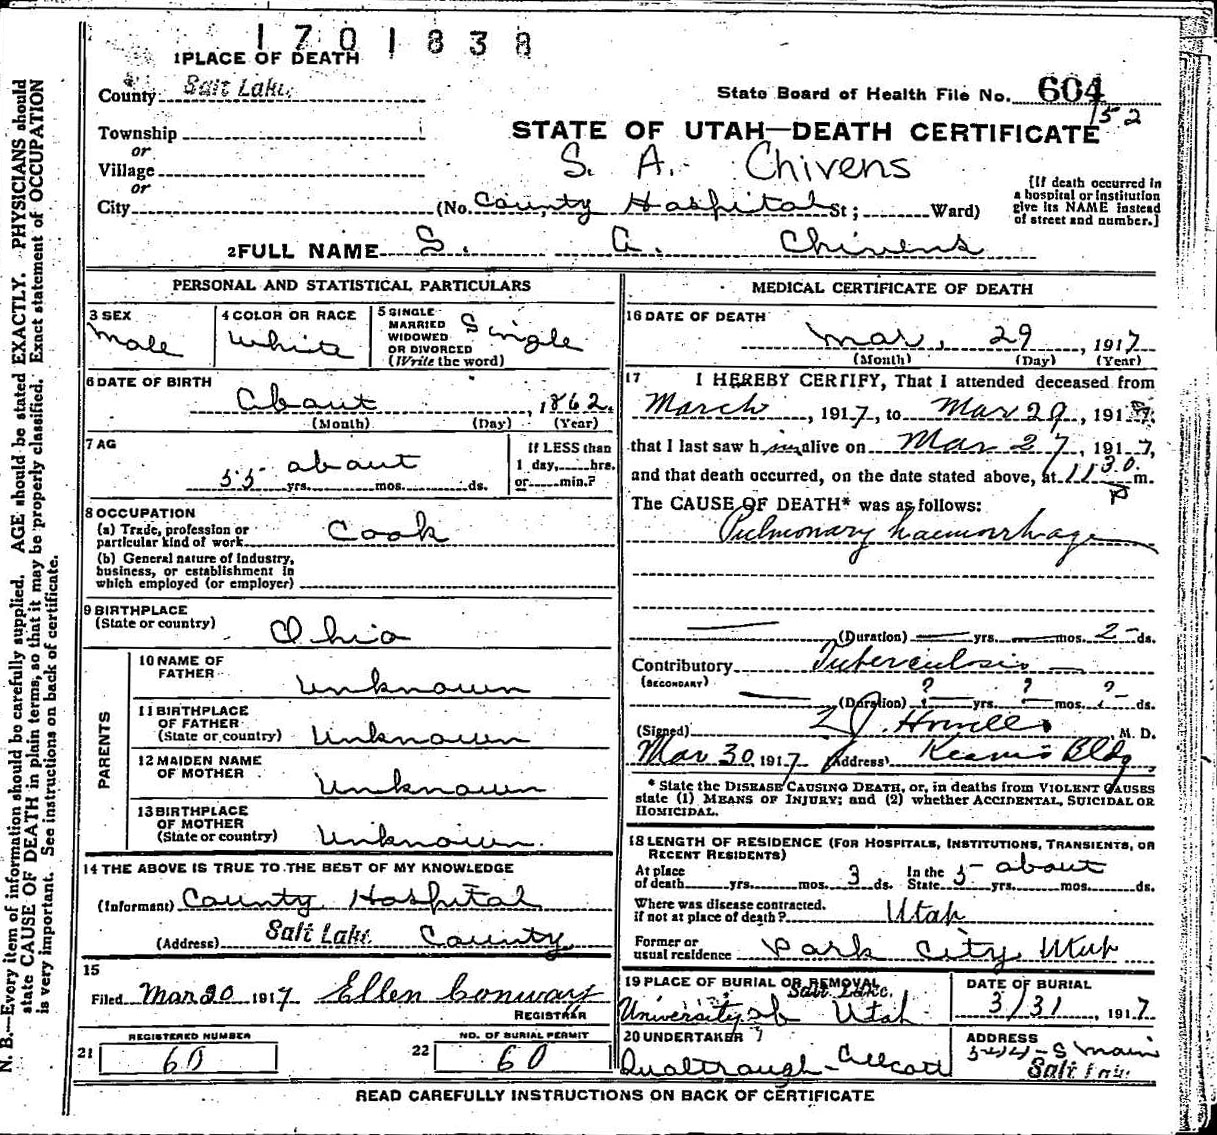 1701838
1 PLACE OF DEATH
County Salt Lake
State Board of Health File No. 604
152
Township
or
STATE OF UTAH—DEATH CERTIFICATE
S. A. Chivens
Village
or
City (No. County Hospital St; Ward)
[If death occurred in a hospital or institution give its NAME instead of street and number.]
2 FULL NAME S. A. Chivens
PERSONAL AND STATISTICAL PARTICULARS
3 SEX
Male
4 COLOR OR RACE
White
5 SINGLE MARRIED WIDOWED OR DIVORCED (Write the word)
Single
6 DATE OF BIRTH
About , 1862.
(Month) (Day) (Year)
7 AG
55 yrs. about mos. ds.
If LESS than 1 day, hrs. or min.?
8 OCCUPATION
(a) Trade, profession or particular kind of work Cook
(b) General nature of industry, business, or establishment in which employed (or employer)
9 BIRTHPLACE
(State or country)
Ohio
PARENTS
10 NAME OF FATHER
Unknown
11 BIRTHPLACE OF FATHER (State or country)
Unknown
12 MAIDEN NAME OF MOTHER
Unknown
13 BIRTHPLACE OF MOTHER (State or country)
Unknown.
14 THE ABOVE IS TRUE TO THE BEST OF MY KNOWLEDGE
(Informant) County Hospital
(Address) Salt Lake County
15
Filed Mar 30 1917 Ellen Conway
REGISTRAR
REGISTERED NUMBER
21 60
NO. OF BURIAL PERMIT
22 60
MEDICAL CERTIFICATE OF DEATH
16 DATE OF DEATH
Mar. 29 , 1917
(Month) (Day) (Year)
17 I HEREBY CERTIFY, That I attended deceased from
March , 1917, to Mar 29, 1917,
that I last saw him alive on Mar 27, 1917,
and that death occurred, on the date stated above, at 11 30 P m.
The CAUSE OF DEATH* was as follows:
Pulmonary haemorrhage
(Duration) yrs. mos. 2 ds.
Contributory Tuberculosis
(SECONDARY)
(Duration) ? yrs. ? mos. ? ds.
(Signed) Howells M. D.
Mar 30, 1917 (Address) Kearns Bldg
* State the DISEASE CAUSING DEATH, or, in deaths from VIOLENT CAUSES
state (1) MEANS OF INJURY; and (2) whether ACCIDENTAL, SUICIDAL OR
HOMICIDAL.
18 LENGTH OF RESIDENCE (FOR HOSPITALS, INSTITUTIONS, TRANSIENTS, OR
RECENT RESIDENTS)
At place of death yrs. mos. 3 ds. In the State 5 yrs. about mos. ds.
Where was disease contracted. if not at place of death? Utah
Former or usual residence Park City, Utah
19 PLACE OF BURIAL OR REMOVAL
Salt Lake.
University of Utah
DATE OF BURIAL
3/31 , 1917
20 UNDERTAKER
Qualtrough-Allcott
ADDRESS
S Main
Salt Lake
READ CAREFULLY INSTRUCTIONS ON BACK OF CERTIFICATE
N. B.—Every item of information should be carefully supplied. AGE should be stated EXACTLY. PHYSICIANS should
state CAUSE OF DEATH in plain terms, so that it may be properly classified. Exact statement of OCCUPATION
is very important. See instructions on back of certificate.